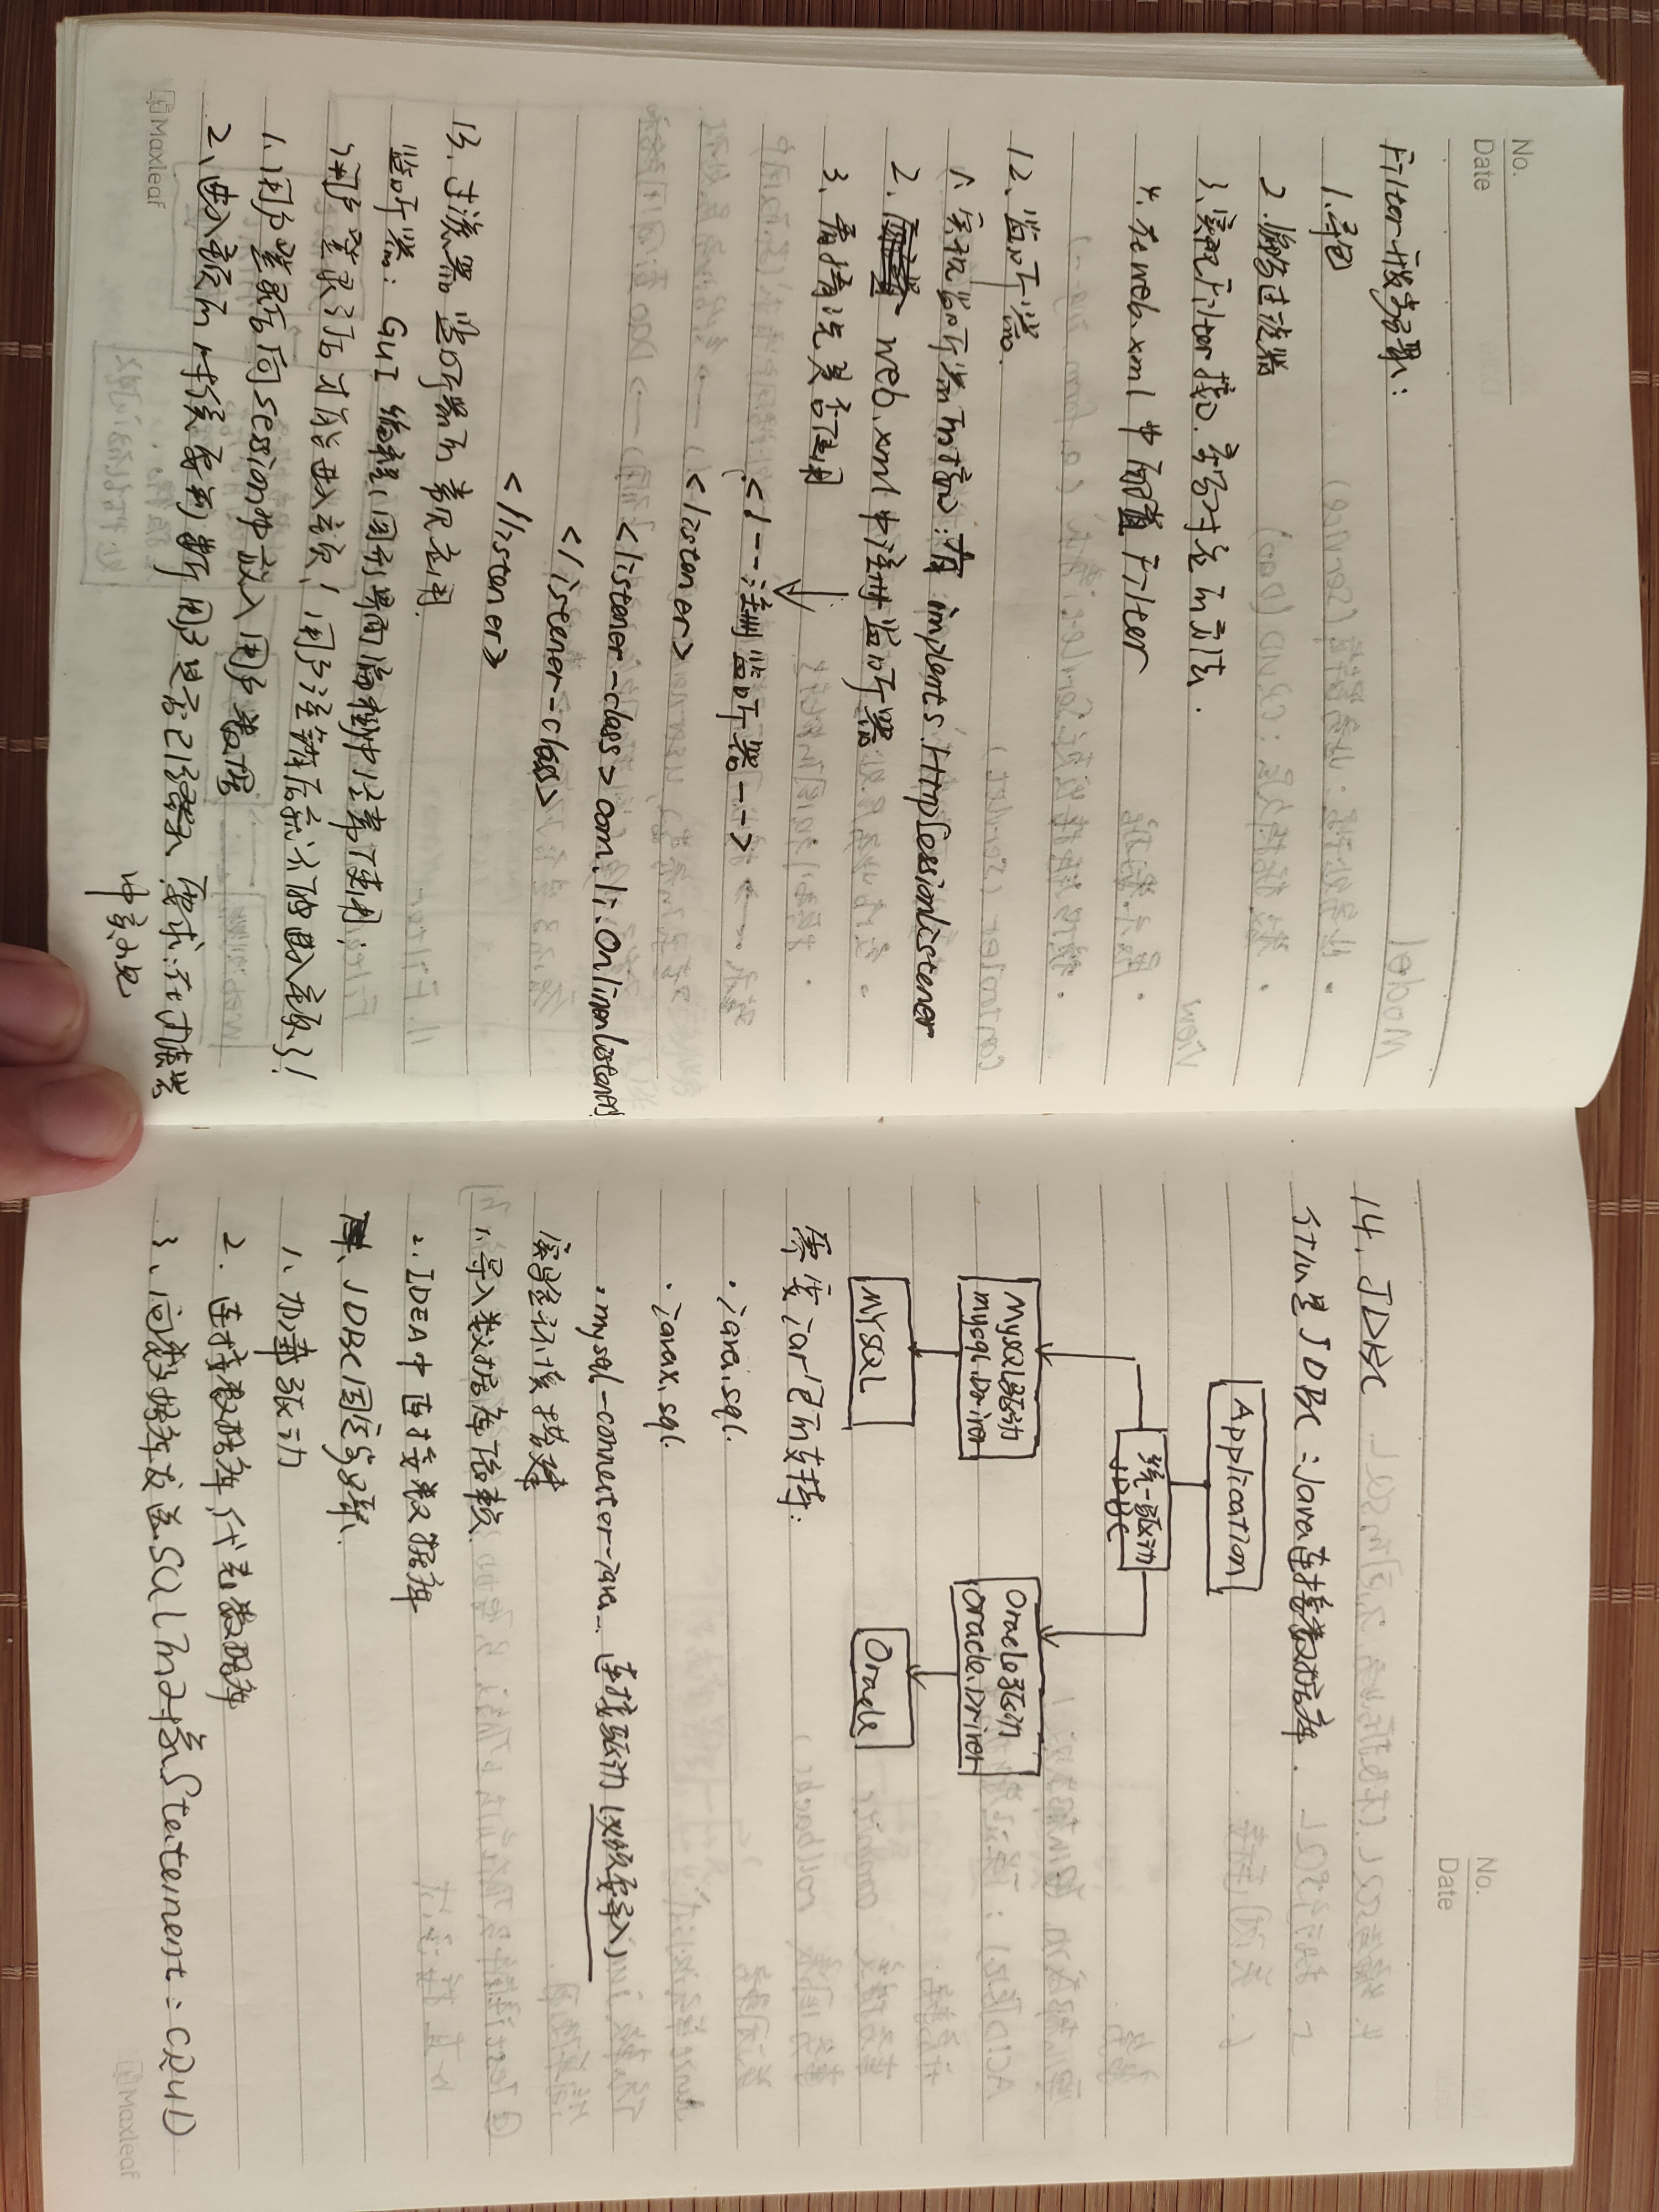 No.
Date
Filter开发步骤:
1.导包
2.编写过滤器
3.实现Filter接口.重写对应的方法.
4.在web.xml中配置Filter
12、监听器.
1、实现监听器的接口: implents HttpSessionListener
2. web.xml中注册监听器
3、看情况是否使用
<!---注册监听器-->
<listener>
<listener-class>com.li.
</listener-class>
</listener>
13、过滤器 监听器的常见应用.
监听器: GUI编程、图形界面编程中经常使用;
用户登录之后才能进入主页!用户注销后就不能进入主页了!
1.用户登录后向session中放入用户数据
2、进入主页的时候要判断用户是否已经登录,要求:在过滤器
中实现
Maxleaf
No.
Date
14、JDBC
什么是JDBC:Java连接数据库.
Application
统一驱动
JDBC
MySQL驱动
mysql.Driver
Oracle驱动
oracle.Driver
MYSQL
Oracle
需要jar包的支持:
·java.sql.
·javax.sql.
·mysql-connecter-java... 连接驱动(必须要导入)
实验环境搭建
1、导入数据库依赖
2. IDEA中连接数据库
JDBC固定步骤、
1、加载驱动
2. 连接数据库,代表数据库
3、向数据库发送SQL的对象Statement:CRUD
Maxleaf